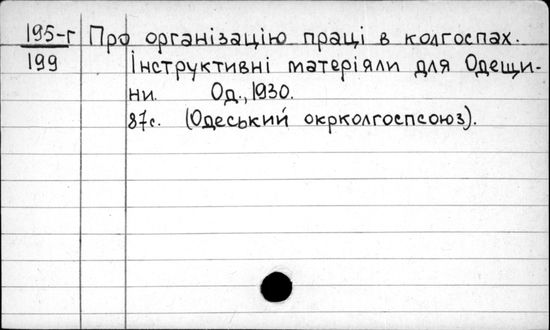 195-г Про організацію праці в колгоспах.
199 Інструктивні матеріяли для Одещи-
ни. Од., 1930.
87с. (Одеський окрколгоспсоюз).